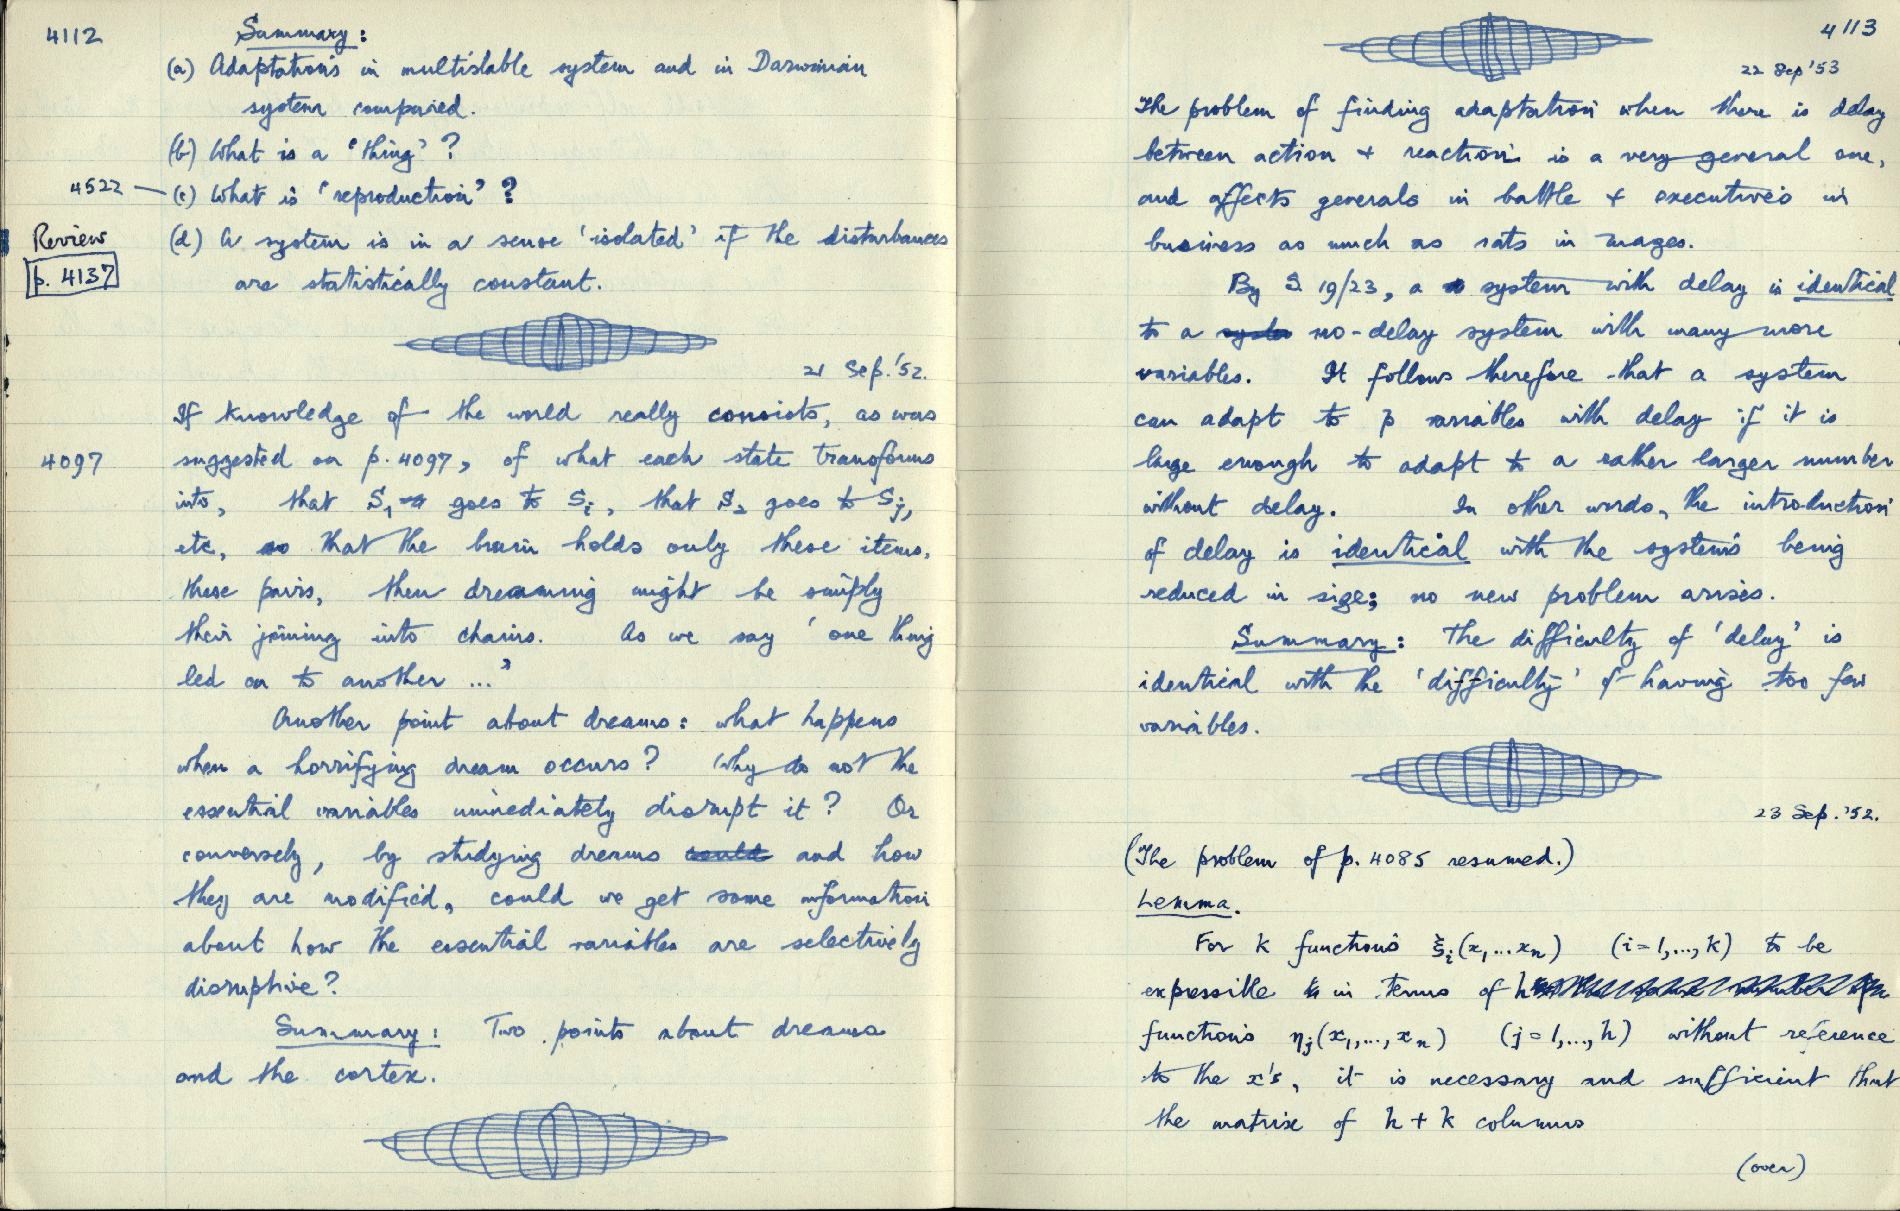 4112
Summary:
(a) Adaptation in multistable system and in Darwinian
system compared.
(b) What is a 'thing' ?
4522 — (c) What is 'reproduction' ?
Review
p. 4137
(d) A system is in a sense 'isolated' if the disturbances
are statistically constant.
21 Sep. '52.
If knowledge of the world really consists, as was
4097
suggested on p. 4097, of what each state transforms
into, that S₁ goes to Sᵢ, that S₂ goes to Sⱼ,
etc, so that the brain holds only these items,
these pairs, then dreaming might be simply
their joining into chains. As we say 'one thing
led on to another ...'
Another point about dreams: what happens
when a horrifying dream occurs? Why do not the
essential variables immediately disrupt it? Or
conversely, by studying dreams could and how
they are modified, could we get some information
about how the essential variables are selectively
disruptive?
Summary: Two points about dreams
and the cortex.
4113
22 Sep '53
The problem of finding adaptation when there is delay
between action + reaction is a very general one,
and affects generals in battle + executives in
business as much as rats in mazes.
By S. 19/23, a system with delay is identical
to a syste no-delay system with many more
variables. It follows therefore that a system
can adapt to p variables with delay if it is
large enough to adapt to a rather larger number
without delay. In other words, the introduction
of delay is identical with the system's being
reduced in size; no new problem arises.
Summary: The difficulty of 'delay' is
identical with the 'difficulty' of having too few
variables.
23 Sep. '52.
(The problem of p. 4085 resumed.)
Lemma.
For k functions ξᵢ(x₁...xₙ) (i=1,...,k) to be
expressible in terms of h
functions ηⱼ(x₁,...,xₙ) (j=1,...,h) without reference
to the x's, it is necessary and sufficient that
the matrix of h + k columns
(over)